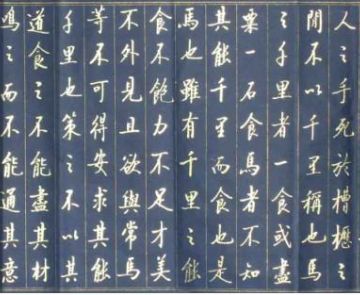 人之手死於槽櫪之
間不以千里稱也馬
之千里者一食或盡
粟一石食馬者不知
其能千里而食也是
馬也雖有千里之能
食不飽力不足才美
不外見且欲與常馬
等不可得安求其能
千里也策之不以其
道食之不能盡其材
鳴之而不能通其意